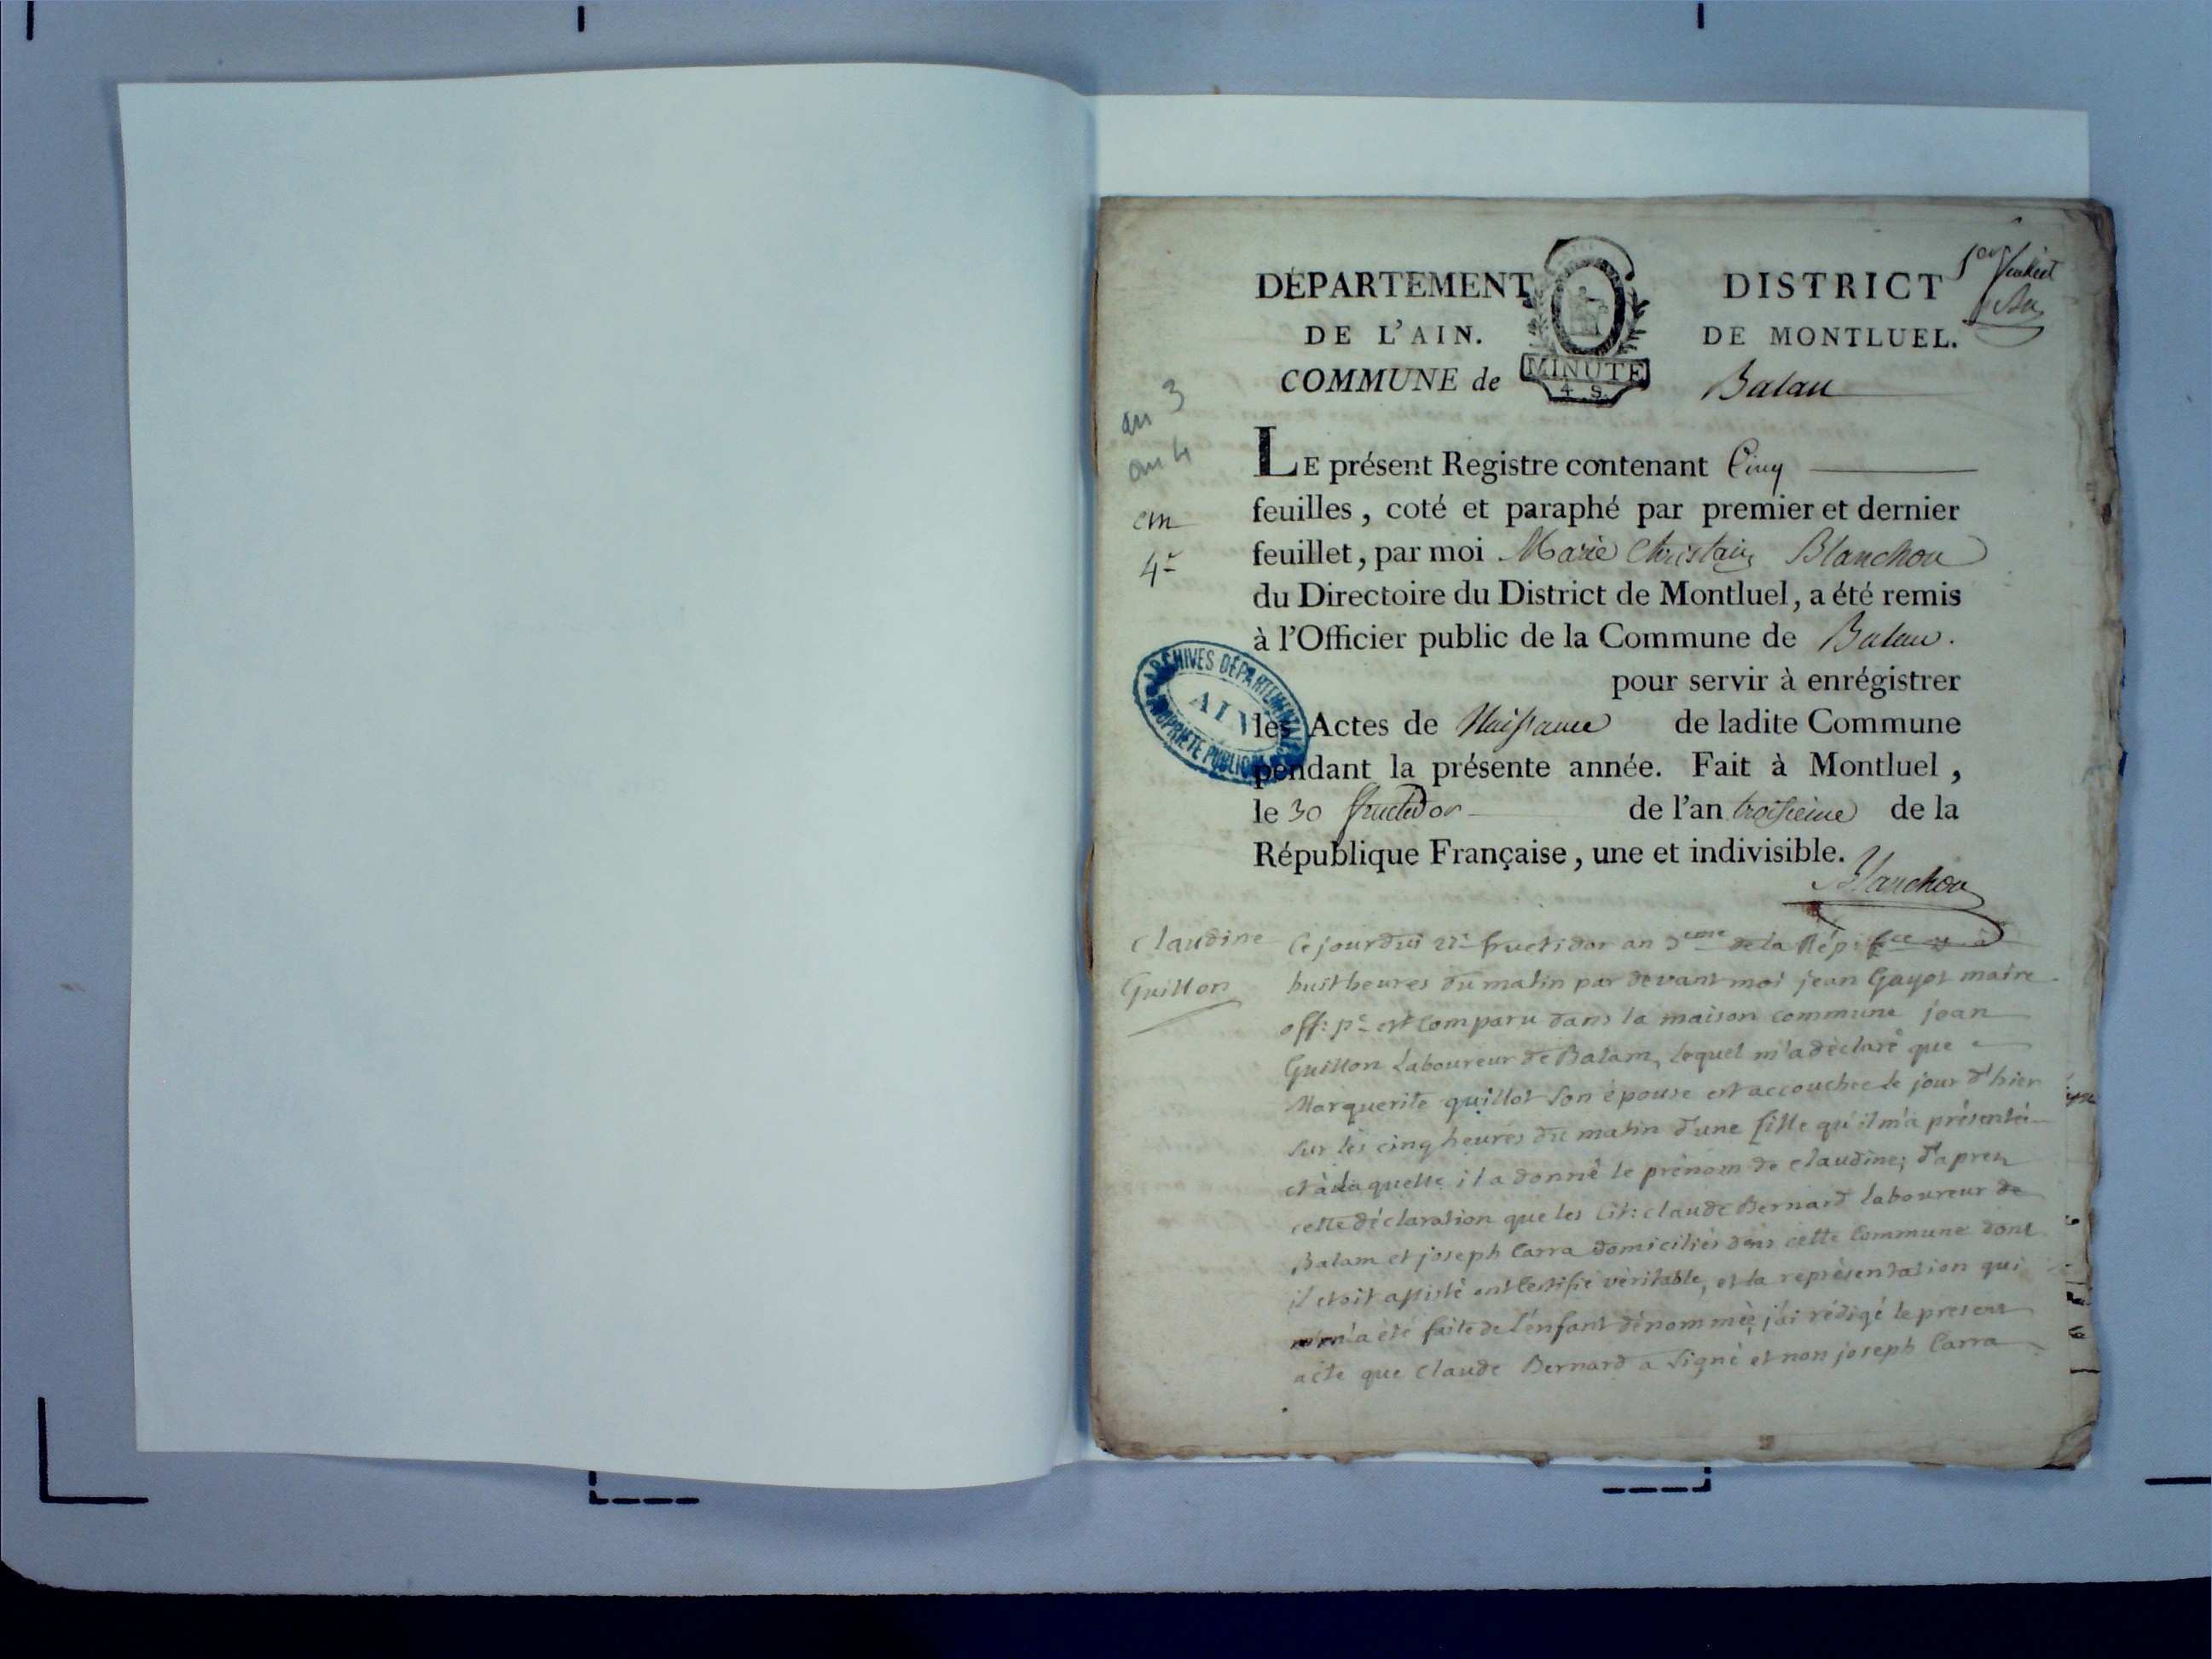 1er feuillet
DÉPARTEMENT
DE L'AIN.
COMMUNE de
MINUTE
4 S.
DISTRICT
DE MONTLUEL.
Balan
an 3
an 4
LE présent Registre contenant Cinq
feuilles, coté et paraphé par premier et dernier
feuillet, par moi Marie Christain Blanchon
du Directoire du District de Montluel, a été remis
à l'Officier public de la Commune de Balan.
pour servir à enrégistrer
les Actes de Naissance de ladite Commune
pendant la présente année. Fait à Montluel,
le 30 fructidor de l'an troisieme de la
République Française, une et indivisible.
Blanchon
ARCHIVES DÉPARTEMENTALES
AIN
PROPRIÉTÉ PUBLIQUE
Claudine
Guillon
Ce jourdui fructidor an 3eme de la Rép: fce à
huit heures du matin par devant moi jean Gayot maire
off: pc est comparu dans la maison commune jean
Guillon Laboureur de Balam, lequel m'a déclaré que
Marguerite quillot son épouse est accouchee le jour d'hier
sur les cinq heures du matin d'une fille qu'il m'a présentée
et à laquelle il a donné le prénom de claudine; d'apren
cette déclaration que les Cit: claude Bernard laboureur de
Balam et joseph Carra domiciliés dans cette Commune dont
il etoit assisté ont certifié véritable, et la représentation qui
m'a été faite de l'enfant dénommée, j'ai rédigé le present
acte que Claude Bernard a signé et non joseph Carra